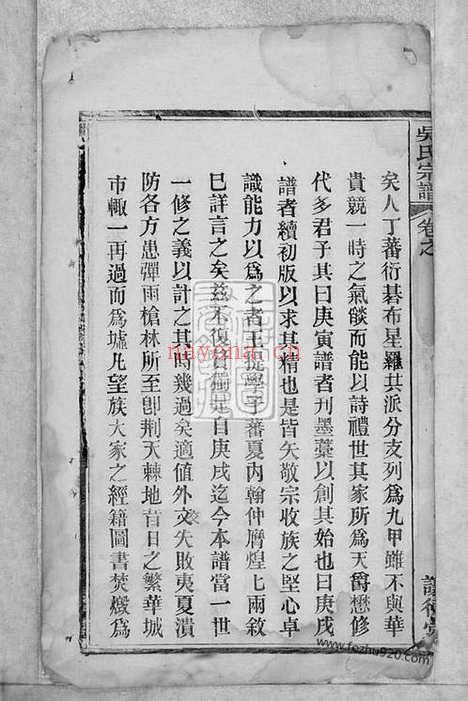 吳氏宗譜
卷之
矣人丁蕃衍碁布星羅共派分支列為九甲雖不與華
貴競一時之氣燄而能以詩禮世其家所為天爵懋修
代多君子其曰庚寅譜者刊墨藁以創其始也曰庚戌
譜者續初版以求其精也是皆矢敬宗收族之堅心卓
識能力以為之者王從學于蕃夏內翰仲膺煌七兩敘
巳詳言之矣茲不復贅獨是自庚戌迄今本譜當一世
一修之義以計之其時幾過矣適值外交失敗夷夏潰
防各方患彈雨槍林所至卽荆天棘地昔日之繁華城
市輙一再過而為墟凡望族大家之經籍圖書焚燬為
nayona.cn
www.fozhu920.com